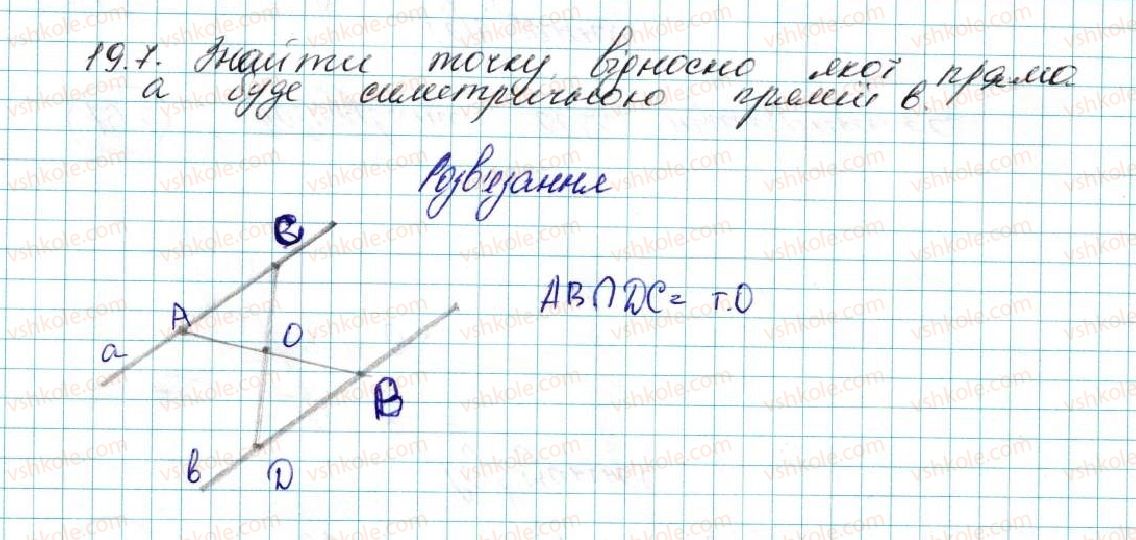 19.7. Знайти точку, відносно якої пряма
а буде симетричною прямій в.
Розв'язання
С
А
а
О
АВ∩DC= т.О
В
в
D